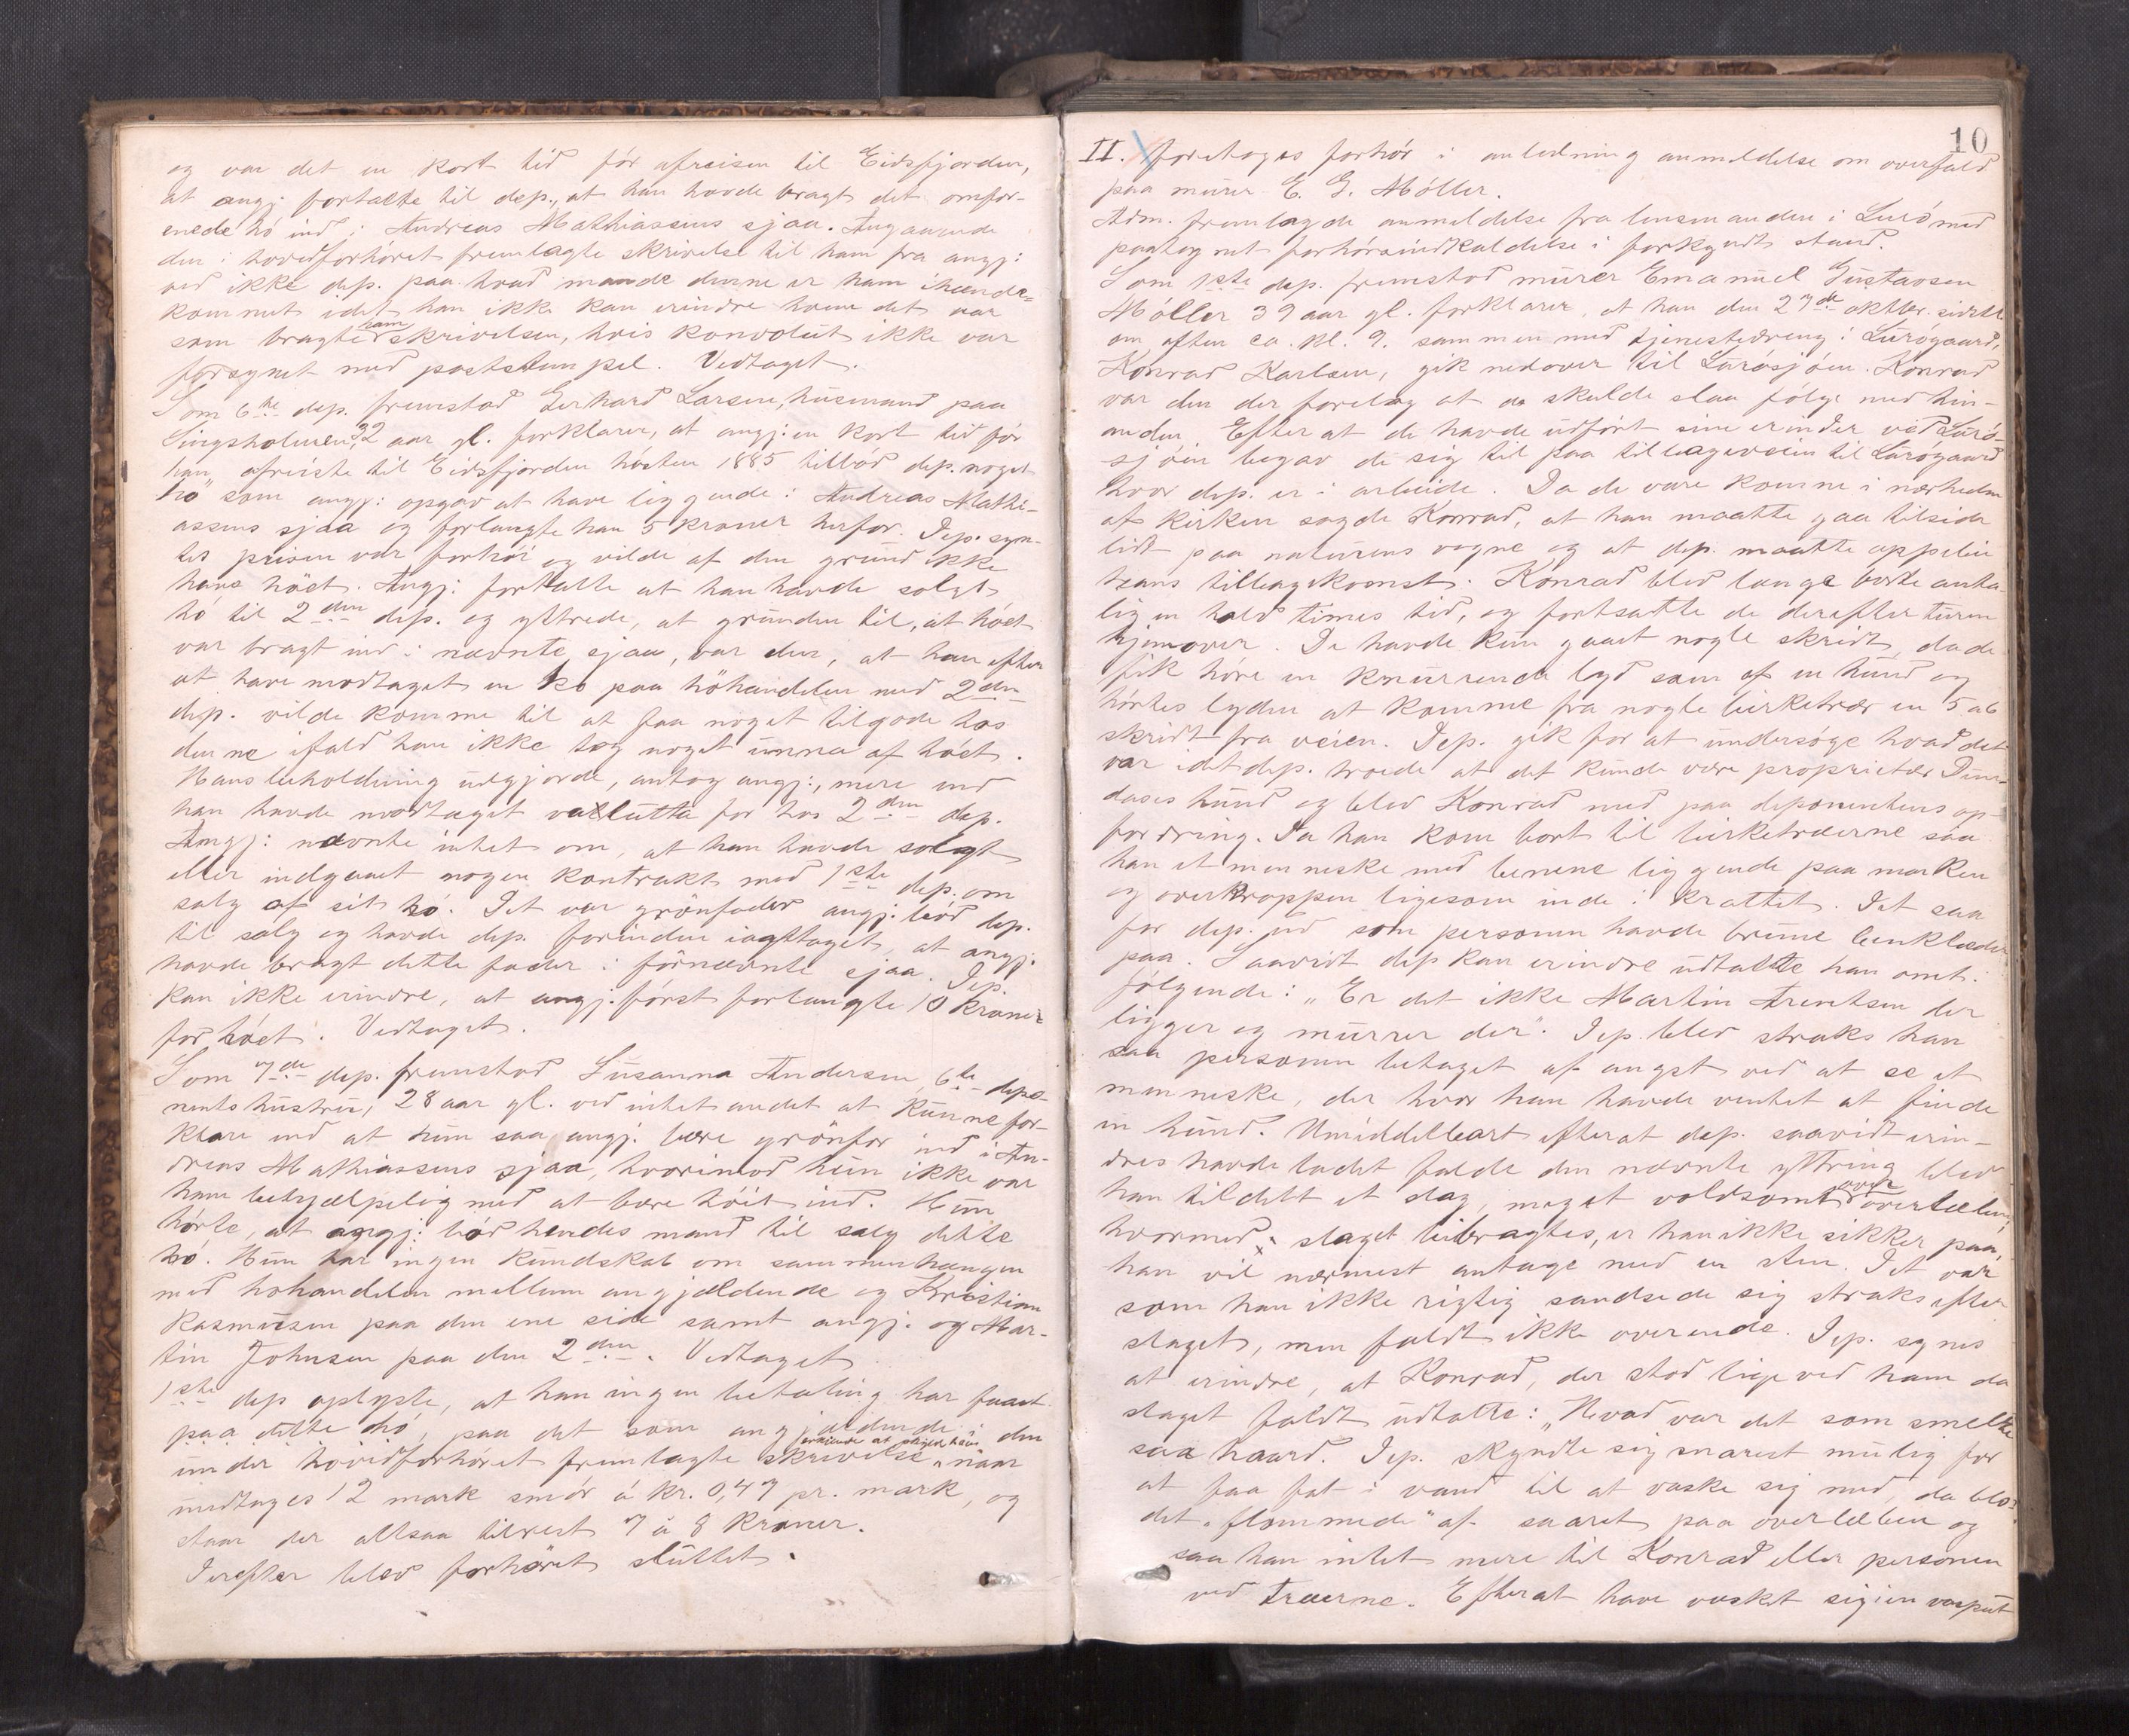 og var det en kort tid før afreisen til Eidsfjorden,
at angj. fortalte til dep., at han havde bragt det omfor-
enede hø ind i Andreas Mathiassens sjaa. Angaaende
den i hovedforhøret fremlagte skrivelse til ham fra angj:
ved ikke dep. paa hvad maade denne er ham ihænde-
kommet idet han ikke kan erindre hvem det var
som bragte ham skrivelsen, hvis konvolut ikke var
forsynet med poststempel. Vedtaget.
Som 6te dep. fremstod Gerhard Larsen, husmand paa
32 aar gl. forklarer, at angj: en kort tid før
han afreiste til Eidsfjorden høsten 1885 tilbød dep. noget
hø som angj: opgav at have liggende i Andreas Mathi-
assens sjaa og forlangte han 5 kroner herfor. Dep. syn-
tes prisen var forhøi og vilde af den grund ikke
have høet. Angj: fortalte at han havde solgt
hø til 2den dep. og yttrede, at grunden til, at høet
var bragt ind i nævnte sjaa, var den, at han efter
at have modtaget en ko paa høhandelen med 2den
dep. vilde komme til at faa noget tilgode hos
denne ifald han ikke tog noget unna af høet.
Hans beholdning udgjorde, antog angj:, mere end
han havde modtaget vallutta for hos 2den dep.
Angj: nævnte intet om, at han havde solgt
eller indgaaet nogen kontrakt med 1ste dep. om
salg af sit hø. Det var grønfoder angj: bød dep.
til salg og havde dep. forinden iagttaget, at angj.
havde bragt dette foder i førnævnte sjaa. Dep.
kan ikke erindre, at angj. først forlangte 10 kroner
for høet. Vedtaget.
Som 7de dep. fremstod Susanna Andersen, 6te depo-
nents hustru, 28 aar gl. ved intet andet at kunne for-
klare end at hun saa angj. bære grønfor ind i An-
dreas Mathiassens sjaa, hvorimod hun ikke var
ham behjælpelig med at bære høit ind. Hun
hørte, at angj: bød hendes mand til salg dette
hø. Hun har ingen kundskab om sammenhængen
med høhandelen mellem angjældende og Kristian
Rasmussen paa den ene side samt angj. og Mar-
tin Johnsen paa den 2den. Vedtaget.
1ste dep oplyste, at han ingen betaling har faaet
paa dette hø, paa det som angjældende i den
under hovedforhøret fremlagte skrivelse naar
undtages 12 mark smør á kr. 0,47 pr. mark, og
staar der altsaa tilrest 7 à 8 kroner.
Derefter blev forhøret sluttet.
10
II. foretoges forhør i anledning anmeldelse om overfald
paa murer E. G. Møller.
Adm. fremlagde anmeldelse fra lensmanden i Lurø med
paategnet forhørsindkaldelse i forkyndt stand.
Som 1ste dep. fremstod murer Emanuel Gustavsen
Møller 39 aar gl. forklarer, at han den 27de oktbr. sidstl
om aften ca. kl. 9. sammen med tjenestedreng i Lurøgaard,
Konrad Karlsen, gik nedover til Lurøsjøen. Konrad
var den der foreslog at de skulde slaa følge med hin-
anden. Efter at de havde udført sine erinder ved Lurø-
sjøen begav de sig til paa tilbageveien til Lurøgaard
hvor dep. er i arbeide. Da de vare komne i nærheden
af kirken sagde Konrad, at han maatte gaa tilside
lidt paa naturens vegne og at dep. maatte oppebie
hans tilbagekomst. Konrad blev længe borte anta-
lig en halv times tid, og fortsatte de derefter turen
hjemover. De havde kun gaaet nogle skridt, da de
fik høre en knurrende lyd som af en hund og
hørtes lyden at komme fra nogle birketrær en 5 a 6
skridt fra veien. Dep. gik for at undersøge hvad det
var idet dep. troede at det kunde være proprietær Dun-
dases hund og blev Konrad med paa deponentens op-
fordring. Da han kom bort til birketræerne saa
han et menneske med benene liggende paa marken
og overkroppen ligesom inde i krattet. Det saa
for dep. ud som personen havde brune benklæder
paa. Saavidt dep kan erindre udtalte han omt.
følgende: „Er det ikke Martin Arentsen der
ligger og murrer der". Dep. blev straks han
saa personen betaget af angst ved at se et
menneske, der hvor han havde ventet at finde
en hund. Umiddelbart efterat dep. saavidt erin-
dres havde ladet falde den nævnte yttring blev
han tildelt et slag, meget voldsomt over overlæben,
hvormed slaget bibragtes, er han ikke sikker paa,
han vil nærmest antage med en sten. Det var
som han ikke rigtig sandsede sig straks efter
slaget, men faldt ikke overende. Dep. synes
at erindre, at Konrad, der stod lige ved ham da
slaget faldt udtalte: „Hvad var det som smelte
saa haard. Dep. skyndte sig snarest mulig for
at faa fat i vand til at vaske sig med, da blo-
det „flommede" af saaret paa overlæben og
saa han intet mere til Konrad eller personen
ved træerne. Efterat have vasket sig i en vasput